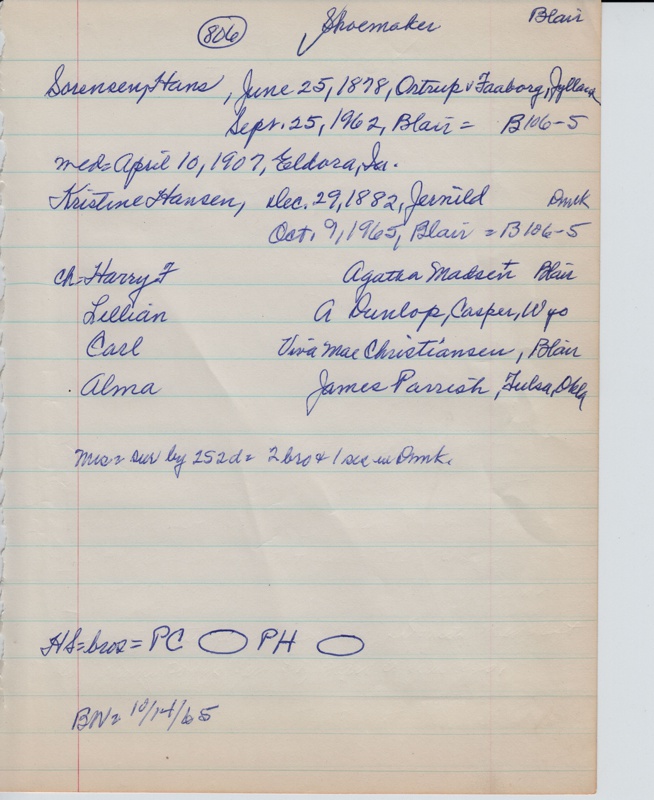 806 Shoemaker Blair
Sorensen, Hans, June 25, 1878, Ostrup v Faaborg, Jylland
Sept. 25, 1962, Blair = B106-5
med = April 10, 1907, Eldora, Ia.
Kristine Hansen, Dec. 29, 1882, Jernild Dmrk
Oct. 9, 1965, Blair = B106-5
ch = Harry F Agatha Madsen Blair
Lillian A Dunlop, Casper, Wyo
Carl Viva Mae Christiansen, Blair
Alma James Parrish, Tulsa, Okla
Mrs = sur by 2s 2d = 2 bro & 1 sis in Dmrk.
HS = bros = PC PH
BN = 10/14/65